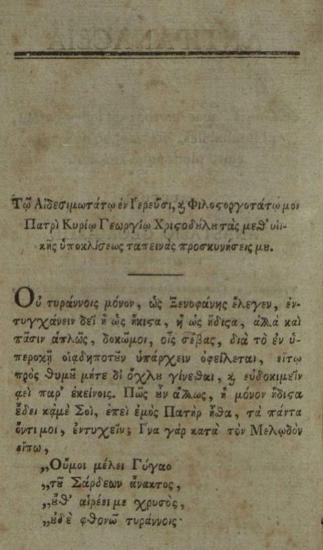 Τῷ Αἰδεσιμωτάτῳ ἐν Ἱερεῦσι, ϗ Φιλοϛοργοτάτῳ μοι
Πατρὶ Κυρίῳ Γεωργίῳ Χριϛοδȣ́λȣ τὰς μεθ' υἱι-
κῆς ὑποκλίσεως ταπεινὰς προσκυνήσεις μȣ.
Οὐ τυράννοις μόνον, ὡς Ξενοφάνης ἔλεγεν, ἐν-
τυγχάνειν δεῖ ἢ ὡς ἥκιϛα, ἢ ὡς ἥδιϛα, ἀλλὰ καὶ
πᾶσιν ἁπλῶς, δοκῶμοι, οἷς σέβας, διὰ τὸ ἐν ὑ-
περοχῇ οἱᾳδηποτȣ͂ν ὑπάρχειν ὀφείλεται, εἴτῳ
πρὸς θυμȣ͂ μήτε δι' ὄχλȣ γίνεσθαι, ϗ εὐδοκιμεῖν
ἀεὶ παρ' ἐκείνοις. Πῶς ȣ̓͂ν ἄλλως, ἢ μόνον ἥδιϛα
ἔδει κᾀμὲ Σοὶ, ἐπεὶ ἐμὸς Πατὴρ ἦσθα, τὰ πάντα
ὄντι μοι, ἐντυχεῖν; Ἵνα γὰρ κατὰ τὸν Μελῳδὸν
εἴπω,
„Οὔμοι μέλει Γύγαο
„τȣ͂ Σάρδεων ἄνακτος,
„ȣ̓́θ' αἱρέει με χρυσὸς,
„ȣ̓δὲ φθονῶ τυράννοις·